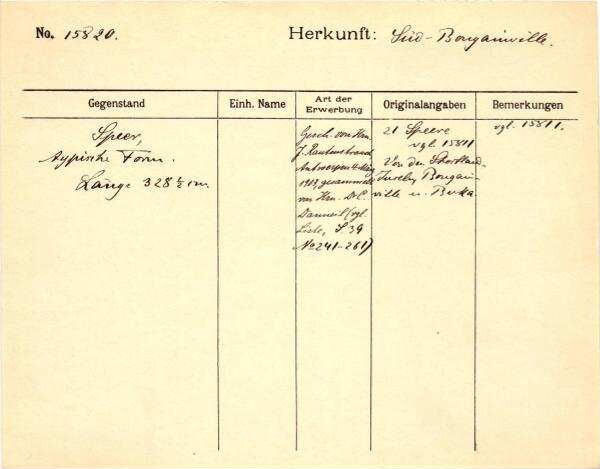 No. 15820. Herkunft: Süd-Bougainville.
Gegenstand Einh. Name Art der Erwerbung Originalangaben Bemerkungen
Speer,
typische Form.
Länge 328 ½ cm.
Gesch. von Hrn.
J. Rautenstrauch
Antwerpen 4. März
1907, gesammelt
von Hrn. Dr. C.
Danneil (vgl.
Liste, S 39
No 241-261)
21 Speere
vgl 15811
Von den Shortland
Inseln, Bougain-
ville u. Buka
vgl. 15811.